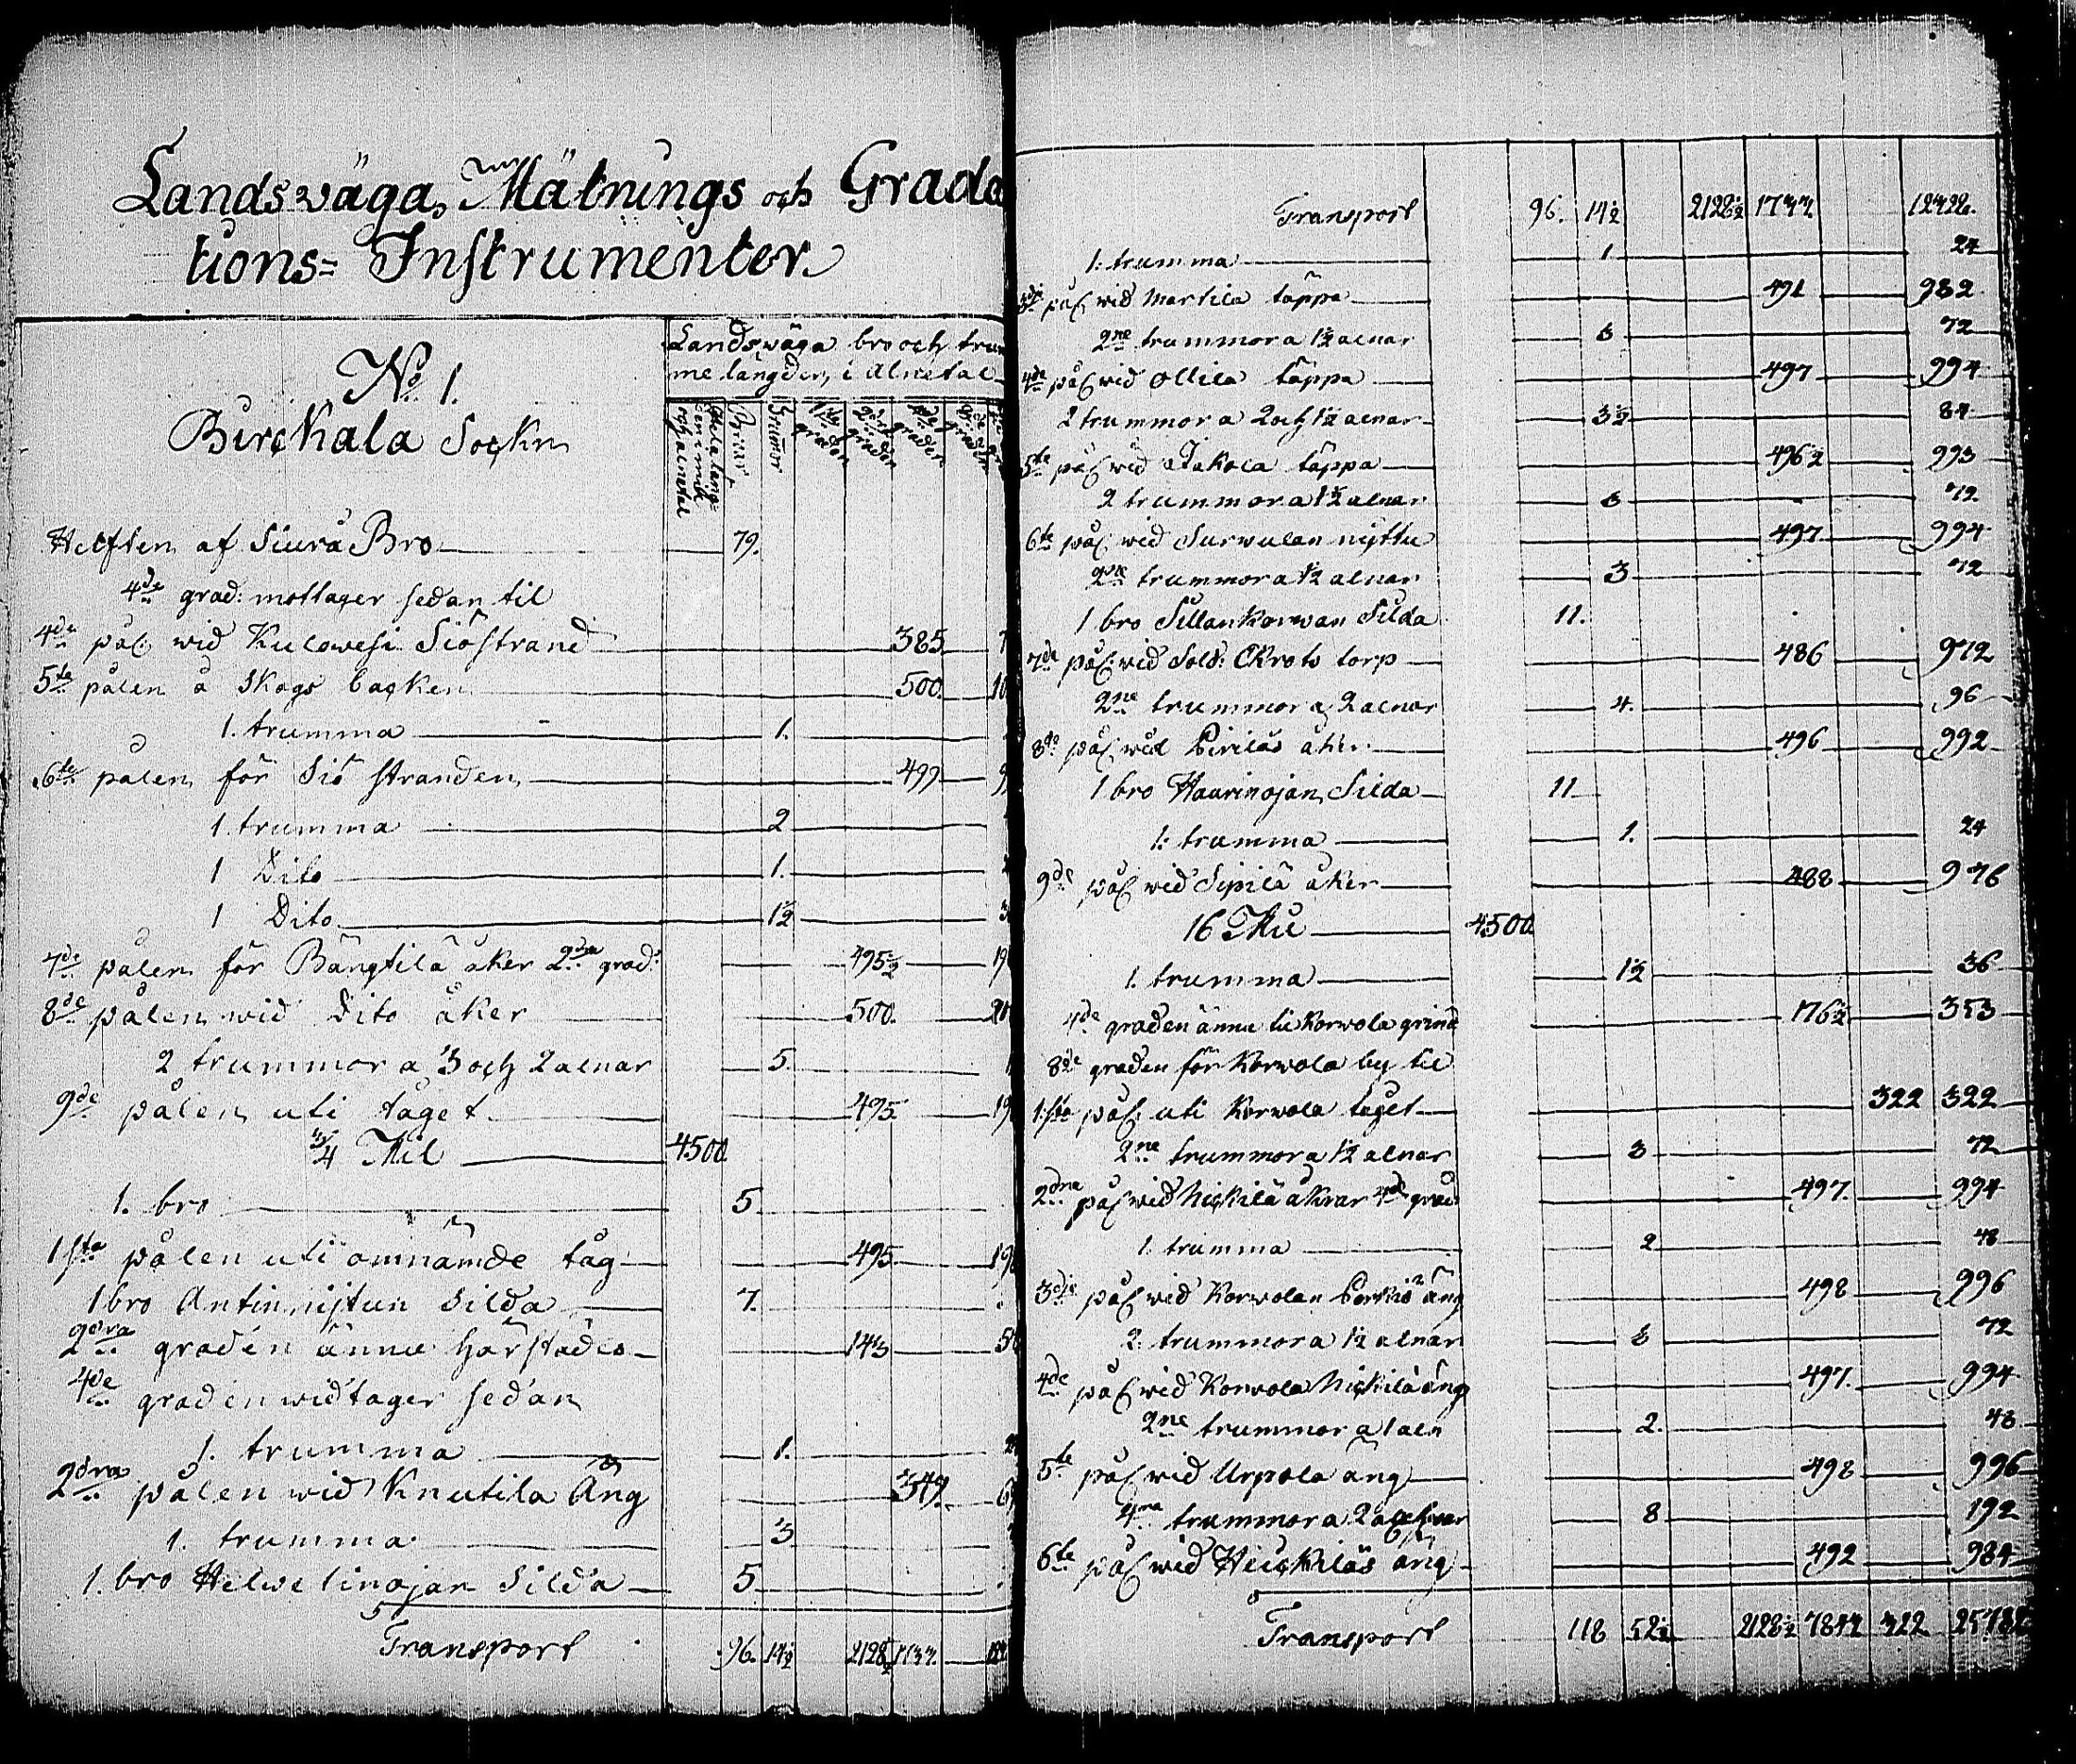 Landswäga Mätnings och Grada
tions= Instrumenter.
Landswäga bro och trum
me längder, i Alnetal
No 1.
Birckala Sockn
Broar
Trumor
graden
graden
graden
graden
Helften af Siurå Bro 79.
4de grad: mottager sedan til
4de pål. wid Kulowesi Siöstrand 385 7
5te pålen å Skogs backen 500. 10
1. trumma 1.
6te pålen för Siö stranden 499 9
1. trumma 2
1 Dito 1. 2
1 Dito 1½ 3
7de pålen för Bängtilä åker 2dra grad: 495½ 19
8de pålen wid Dito åker 500. 20
2 trummor a 3 och 2 alnar 5. 1
9de pålen uti täget 495. 19
¾ Mil 4500
1. bro 5.
1sta pålen uti omnämde täg 495. 198
1 bro Antin nijtun Silda 7.
2dra graden ännu härstädes 143 5
4de graden widtager sedan
1. trumma 1. 2
2dra pålen wid Knutila Äng 349. 6
1. trumma 3
1. bro Helwetinojan Silda 5
Transport 96. 14½ 2128½ 1733. 12
Transport 96. 14½ 2128½ 1733. 12422.
1. trumma 1 24
3die pål wid Martila täppa 491 982
2ne trummor a 1½ alnar 3 72
4de pål wid Ollila täppa 497 994
2 trummor a 2 och 1½ alnar 3½ 84
5te pål wid Jakola täppa 496½ 993
2 trummor a 1½ alnar 3 72
6te pål wid Surwulan nijttu 497 994
2ne trummor a 1½ alnar 3 72
1 bro Sillankorwan Silda 11.
7de pål: wid Sold: Ekrots torp 486 972
2ne trummor a 2 alnar 4. 96
8de pål wid Piriläs åker 496 992
1 bro Haarinojan Silda 11
1. trumma 1. 24
9de pål wid Sipilä åker 488 976
16 Mil 4500
1. trumma 1½ 36
4de graden ännu til Korwola grind 176½ 353
8de graden för Korwola by til
1sta pål uti Korwola täget 322 322
2ne trummor a 1½ alnar 3 72
2dra pål wid Nickilä åkrar 4de grad 497. 994
1. trumma 2 48
3die pål wid Korwolan Perkiö äng 498 996
2. trummor a 1½ alnar 3 72
4de pål wid Korwola Nickilä äng 497. 994
2ne trummor a 1 aln 2. 48
5te pål wid Urpola äng 498 996
4ra trummor a 2 alnar 8 192
6te pål wid Heickiläs äng 492 984
Transport 118 52½ 2128½ 7847 322 25782